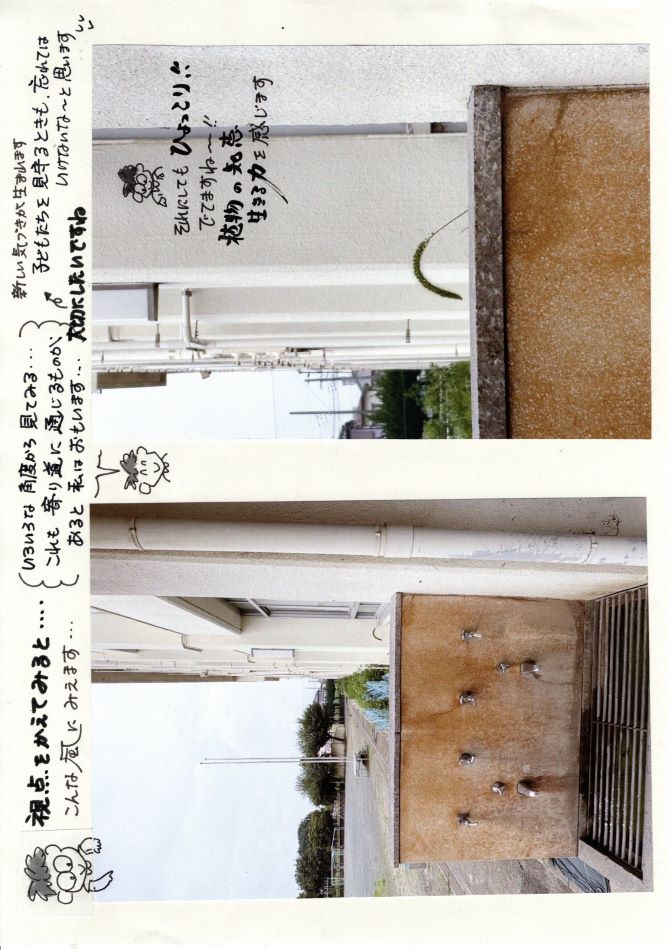 視点をかえてみると‥‥
こんな風にみえます‥
いろいろな角度から見てみる‥‥
これも寄り道に通じるものが、
あると私はおもいます‥‥大切にしたいですね
新しい気づきが生まれます
子どもたちを見守るときも、忘れては
いけないな〜と思います
それにしてもひょっこり!!
でてますね〜!!
植物の知恵
生きる力を感じます